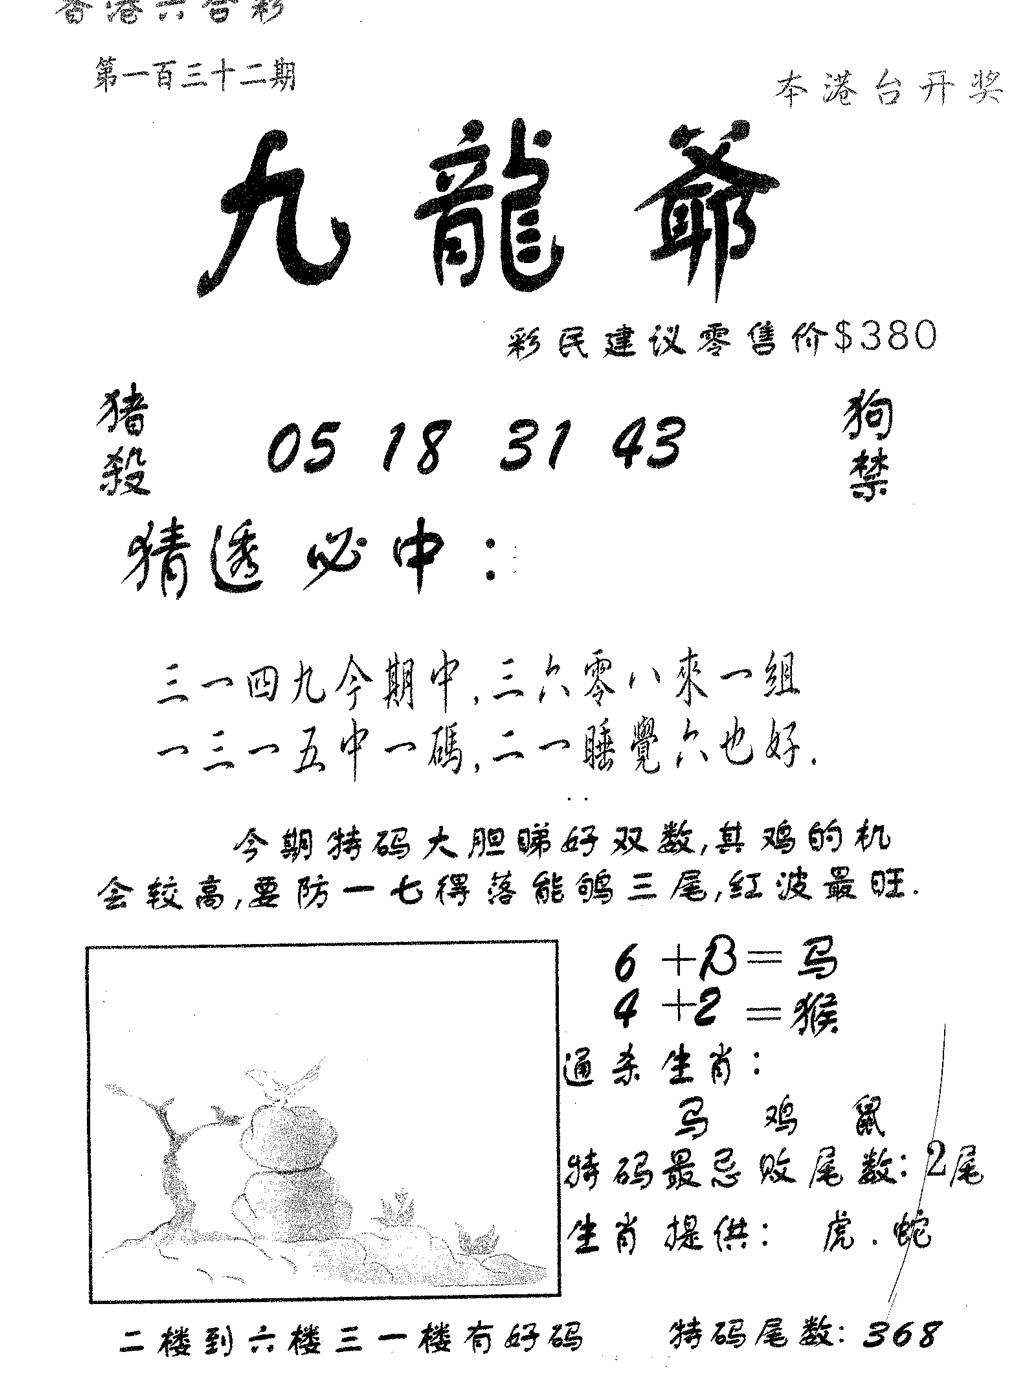 香港六合彩
第一百三十二期
本港台开奖
九龍爺
彩民建议零售价$380
猪殺
05 18 31 43
狗禁
猜透必中：
三一四九今期中,三六零八來一組
一三一五中一碼,二一睡覺六也好.
今期特码大胆睇好双数,其鸡的机
会较高,要防一七得落能鸲三尾,红波最旺.
6+13=马
4+2=猴
通杀生肖：
马 鸡 鼠
特码最忌败尾数：2尾
生肖提供： 虎.蛇
二楼到六楼三一楼有好码
特码尾数：368